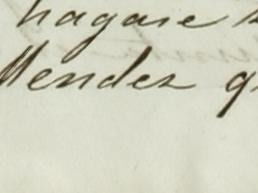 hagase
Mendez